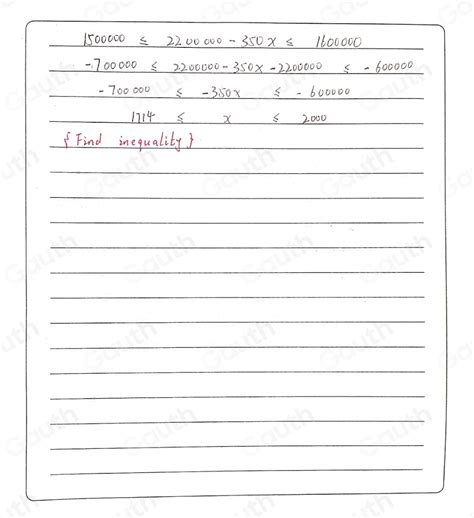 1500000 ≤ 2200000 - 350x ≤ 1600000
-700000 ≤ 2200000 - 350x - 2200000 ≤ -600000
-700000 ≤ -350x ≤ -600000
1714 ≤ x ≤ 2000
{Find inequality}
Gauth